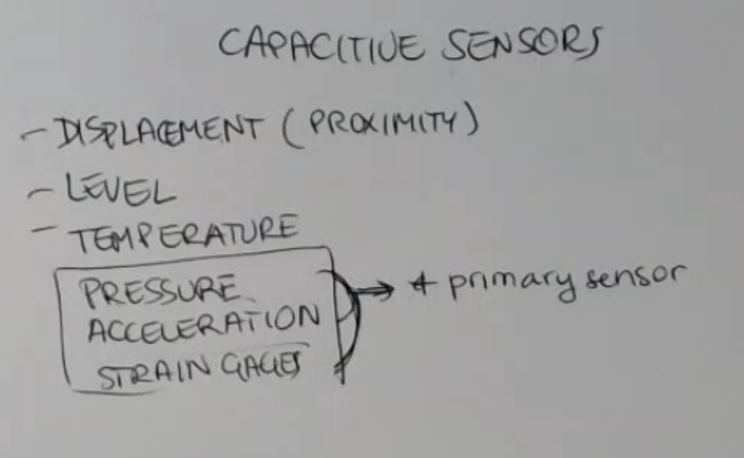 CAPACITIVE SENSORS
- DISPLACEMENT (PROXIMITY)
- LEVEL
- TEMPERATURE
PRESSURE
ACCELERATION → + primary sensor
STRAIN GAGES